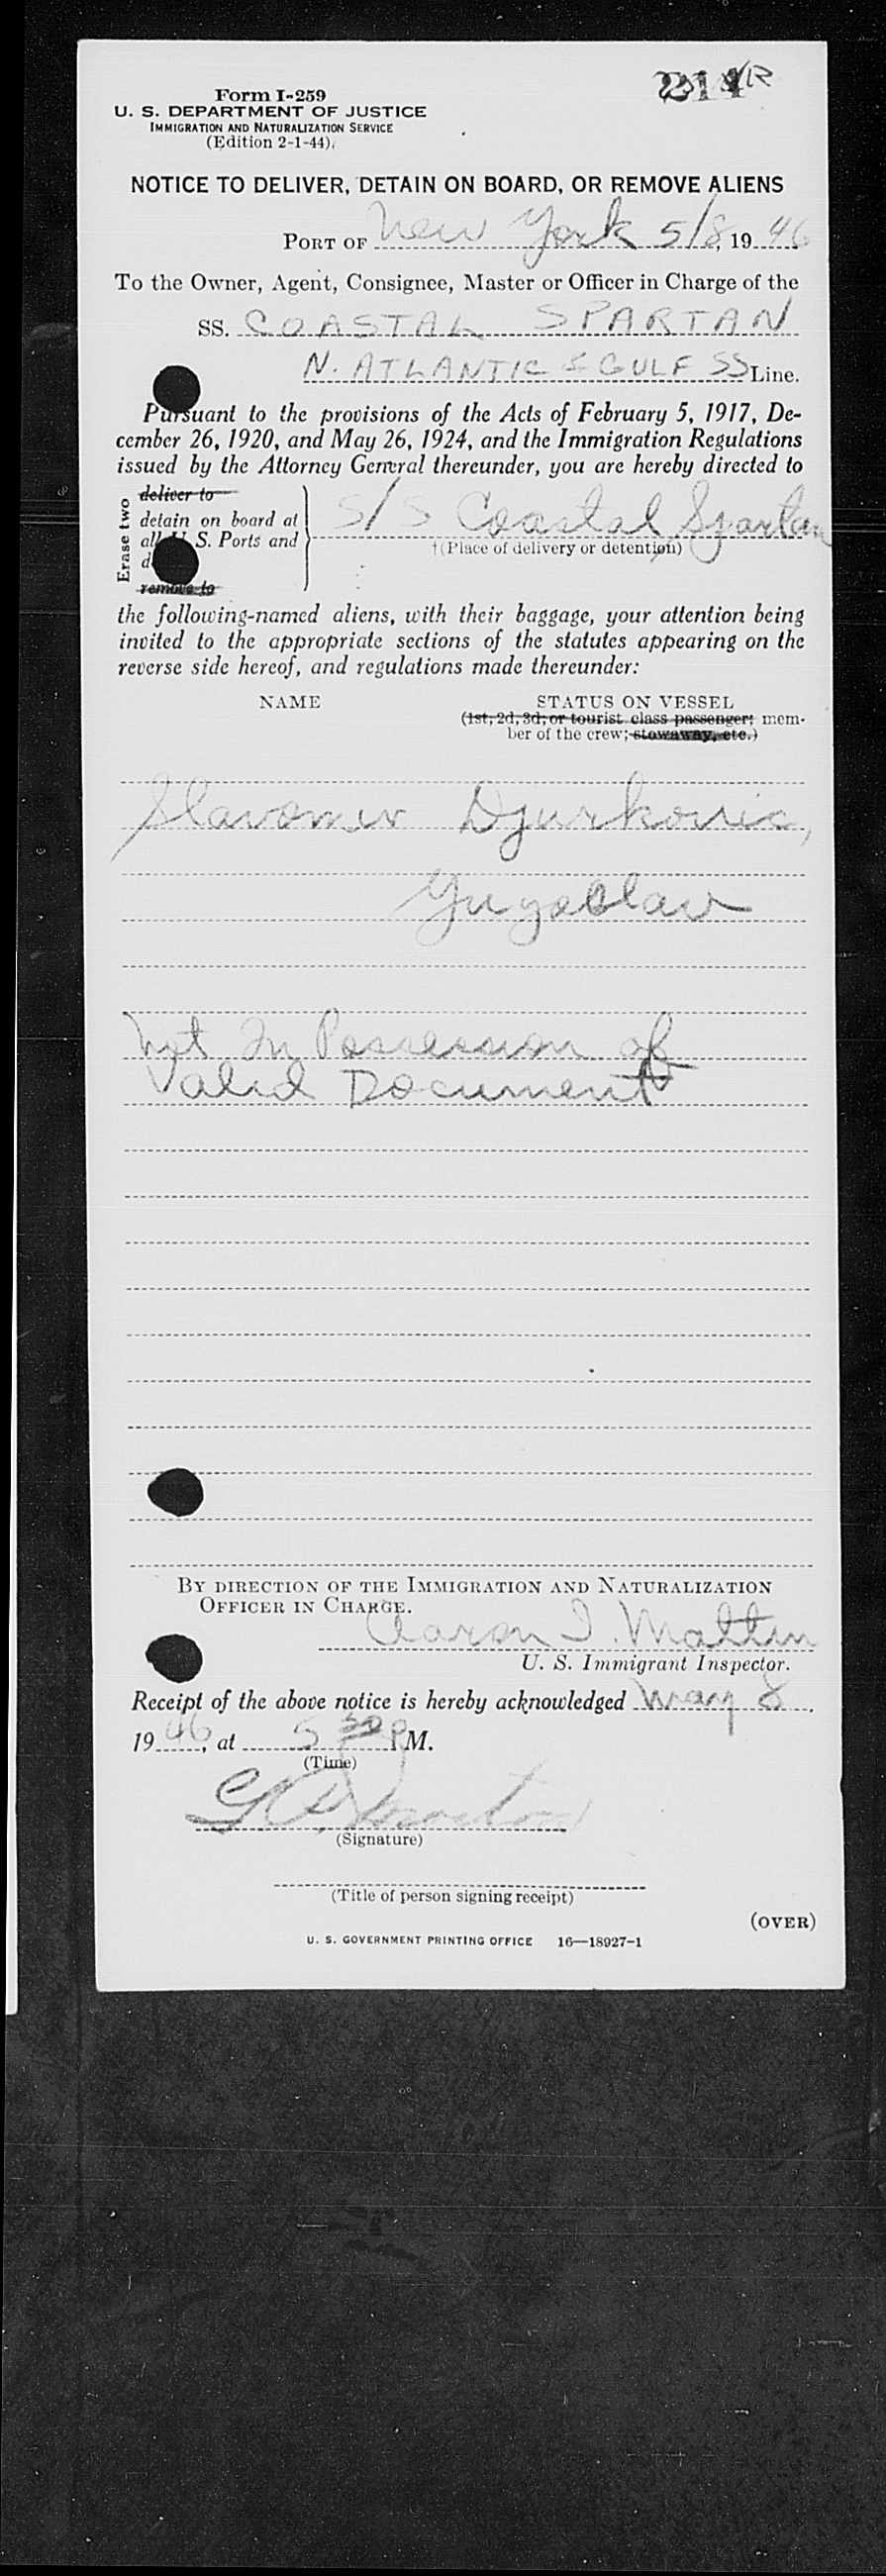 214 VR
Form I-259
U. S. DEPARTMENT OF JUSTICE
IMMIGRATION AND NATURALIZATION SERVICE
(Edition 2-1-44)
NOTICE TO DELIVER, DETAIN ON BOARD, OR REMOVE ALIENS
PORT OF New York 5/8, 1946
To the Owner, Agent, Consignee, Master or Officer in Charge of the
SS. COASTAL SPARTAN
N. ATLANTIC & GULF SS Line.
Pursuant to the provisions of the Acts of February 5, 1917, De-
cember 26, 1920, and May 26, 1924, and the Immigration Regulations
issued by the Attorney General thereunder, you are hereby directed to
Erase two
deliver to
detain on board at
all U. S. Ports and
remove to
S/S Coastal Spartan
†(Place of delivery or detention)
the following-named aliens, with their baggage, your attention being
invited to the appropriate sections of the statutes appearing on the
reverse side hereof, and regulations made thereunder:
NAME STATUS ON VESSEL
(1st, 2d, 3d, or tourist class passenger; mem-
ber of the crew; stowaway, etc.)
Slavomir Djurkovic,
Yugoslav
Not In Possession of
Valid Document
BY DIRECTION OF THE IMMIGRATION AND NATURALIZATION
OFFICER IN CHARGE.
Aaron I. Maltin
U. S. Immigrant Inspector.
Receipt of the above notice is hereby acknowledged May 8,
1946, at 5 30 P M.
(Time)
(Signature)
(Title of person signing receipt)
(OVER)
U. S. GOVERNMENT PRINTING OFFICE 16—18927-1